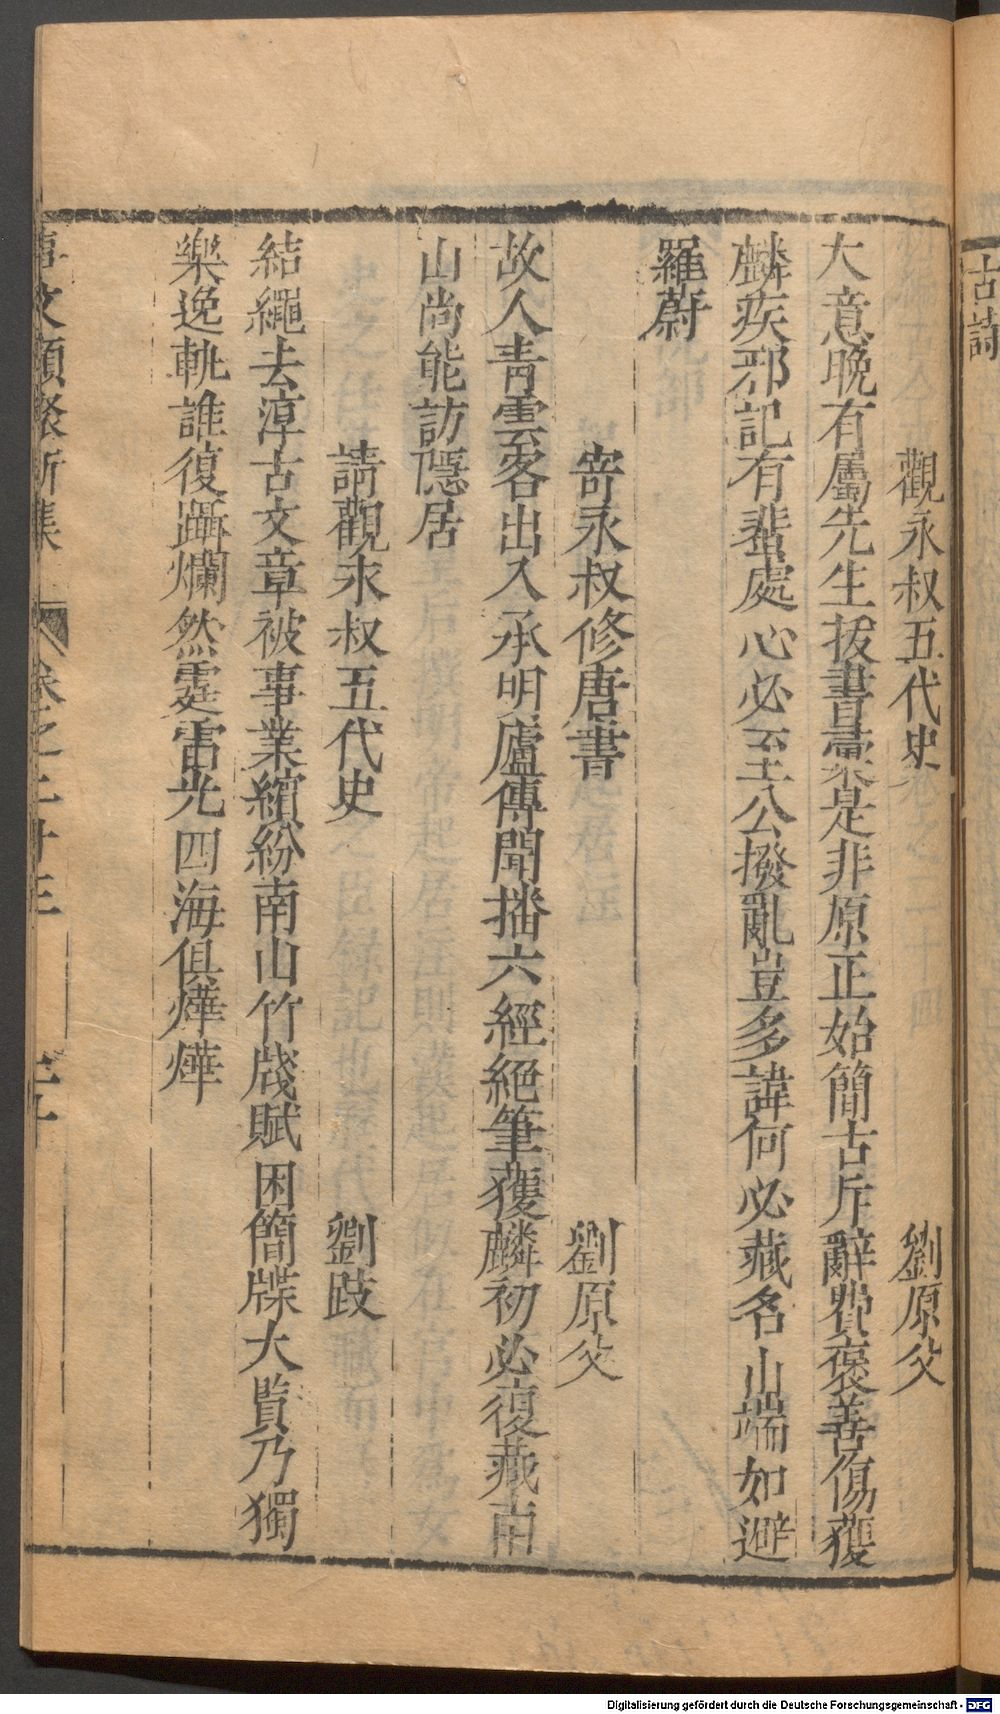 古詩
觀永叔五代史 劉原父
大意晚有屬先生拔書橐是非原正始簡古斥辭費褒善傷獲
麟疾邪記有蜚處心必至公撥亂豈多諱何必藏名山端如避
羅蔚
寄永叔修唐書 劉原父
故人青雲客出入承明廬傳聞播六經絕筆獲麟初必復藏南
山尚能訪隱居
請觀永叔五代史 劉跂
結繩去淳古文章被事業繽紛南山竹牋賦困簡牒大覧乃獨
樂逸軌誰復躡爛然霆雷光四海俱燁燁
事文類聚新集 卷之二十三 三十
Digitalisierung gefördert durch die Deutsche Forschungsgemeinschaft - DFG